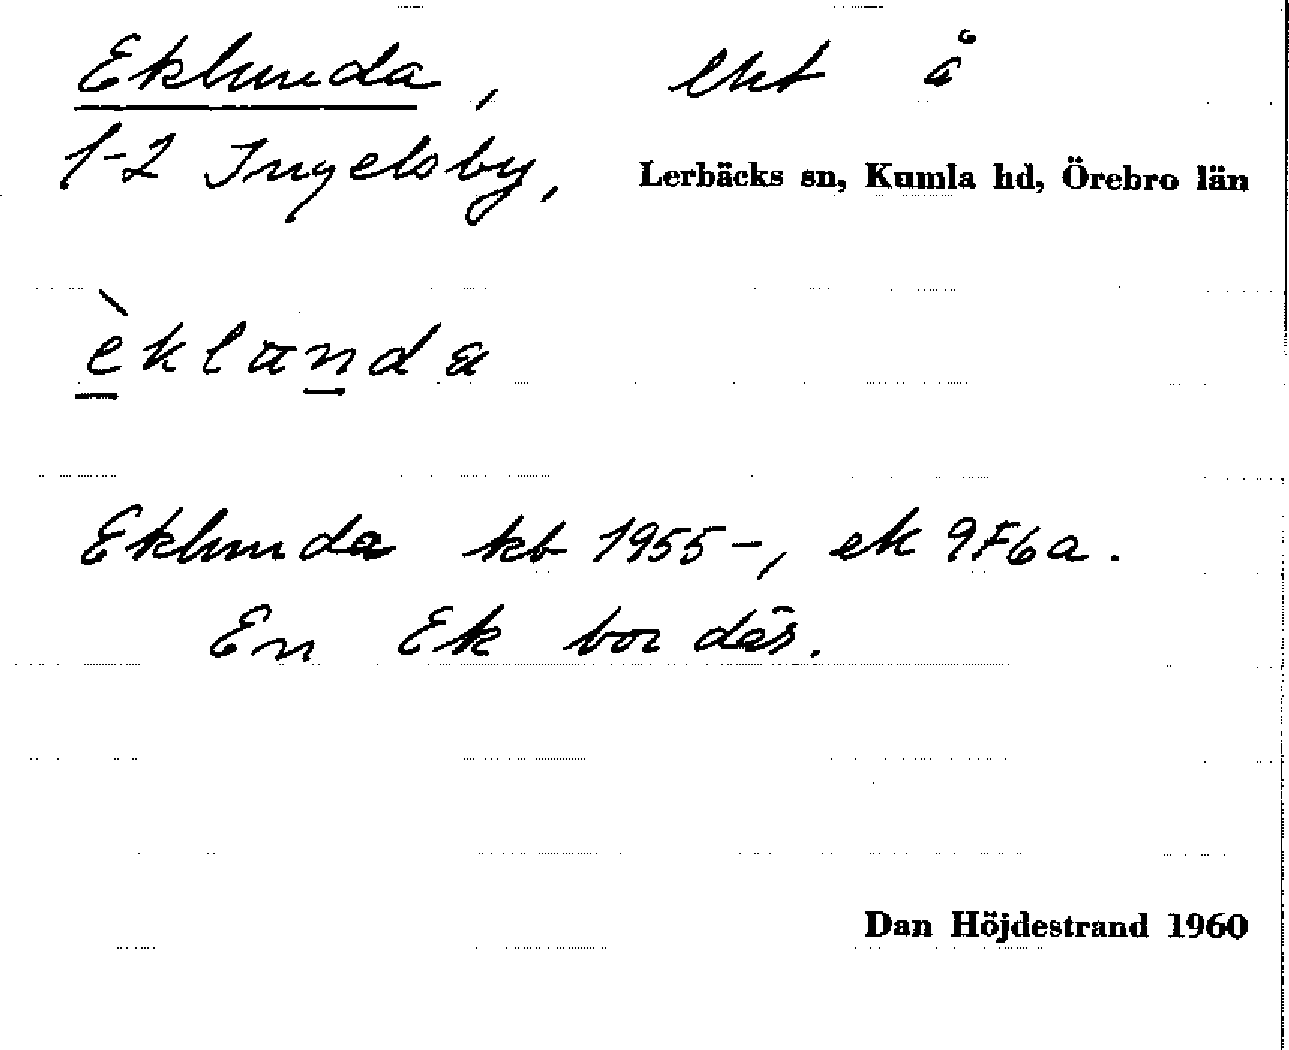 Eklunda, lht å
1-2 Ingelsby, Lerbäcks sn, Kumla hd, Örebro län
èklanda
Eklunda kb 1955-, ek 9F6a.
En Ek bor där.
Dan Höjdestrand 1960